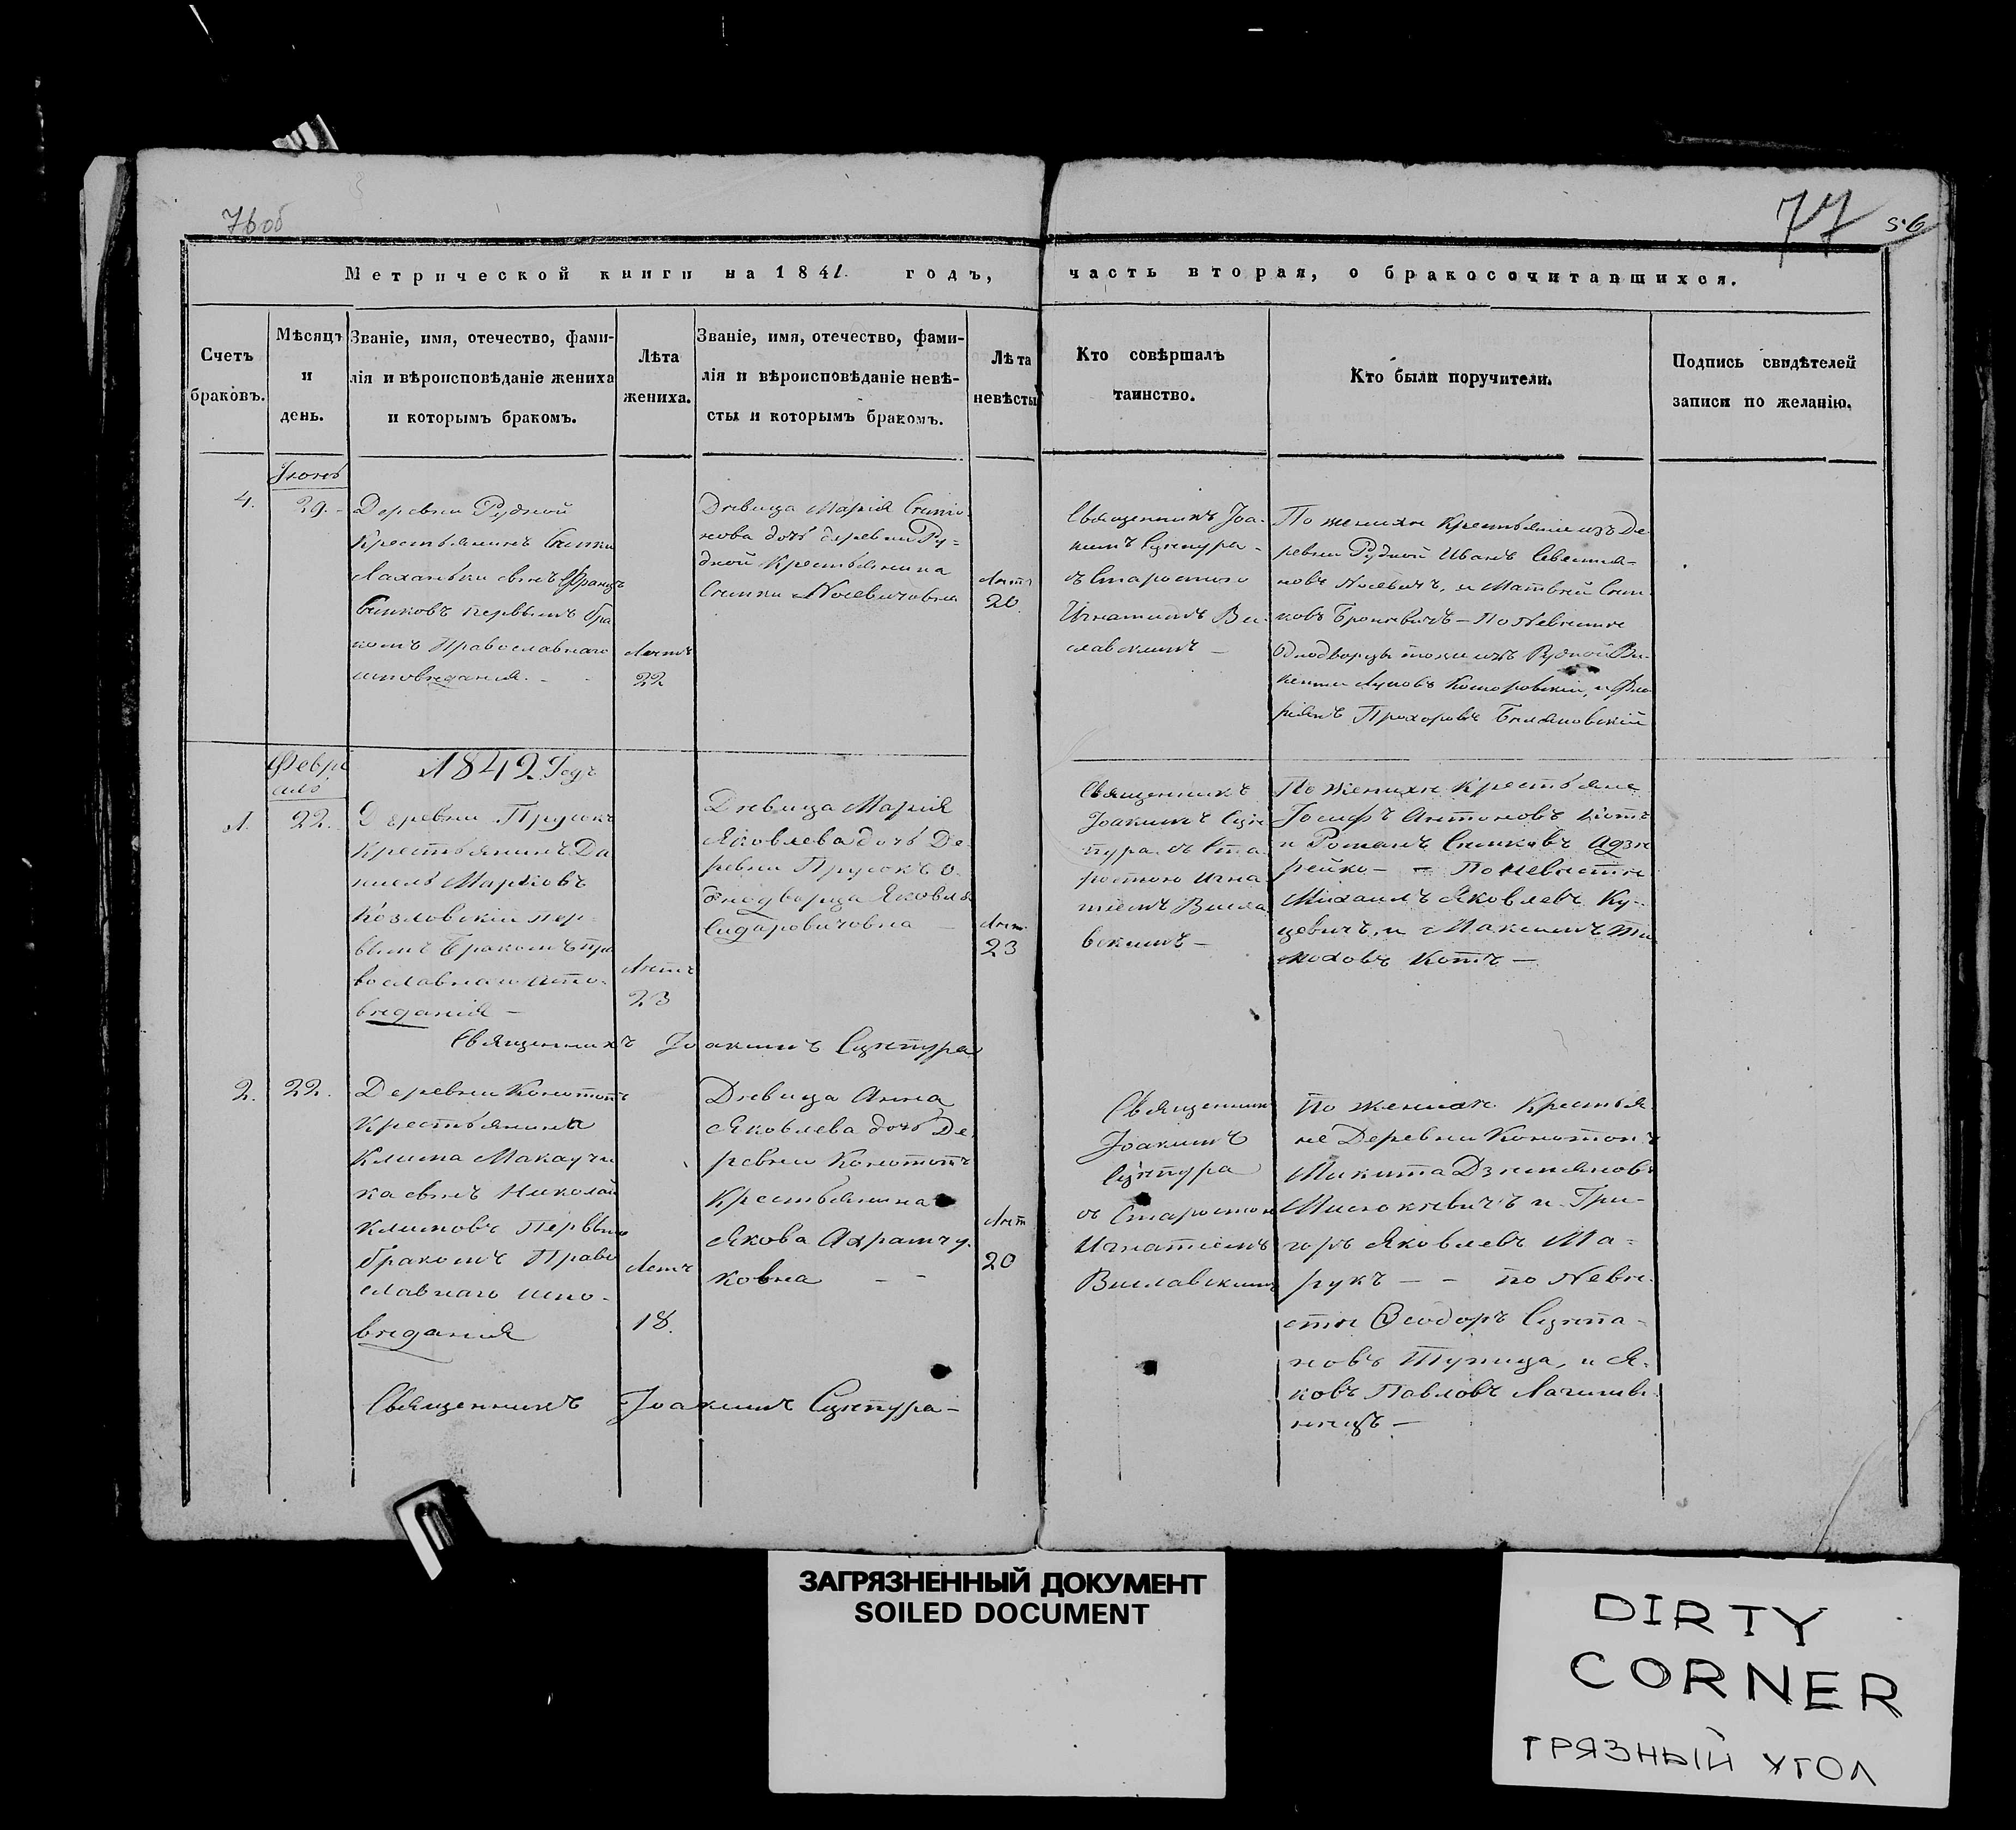 76 об
77 56
Метрической книги на 1841. годъ, часть вторая, о бракосочитавшихся.
Счетъ браковъ.
Мѣсяцъ и день.
Званіе, имя, отечество, фами-
лія и вѣроисповѣданіе жениха
и которымъ бракомъ.
Лѣта жениха.
Званіе, имя, отечество, фами-
лія и вѣроисповѣданіе невѣ-
сты и которымъ бракомъ.
Лѣта невѣсты
Кто совѣршалъ
таинство.
Кто были поручители.
Подпись свидѣтелей
записи по желанію.
4.
29.
Деревни Рудной
Крестьянинъ
сынъ Францъ
первымъ бра
комъ Православнаго
исповѣданія.
Лѣтъ
22
Дѣвица Марія
нова дочь деревни Ру=
дной Крестьянина
Лѣтъ
20.
Священникъ Іоа-
кимъ
съ Старостою
Игнатіемъ Ви-
славскимъ
По женихѣ Крестьяне изъ Де
ревни Рудной Иванъ
и Матвей
По Невѣстѣ
Однодворцы
Прохоровъ
Февра
аль
1842 Годъ
1.
22.
Деревни Прусокъ
Крестьянинъ Да
ніель Марковъ
Козловскій пер=
вымъ Бракомъ Пра
вославнаго испо-
вѣданія
Лѣтъ
23
Дѣвица Марія
Яковлева дочь Де-
ревни Прусокъ О-
днодворца Якова
Сидаровичовна
Лѣт
23
Священникъ
Іоакимъ
съ Ста-
ростою Игна-
тіемъ Висла
вскимъ
По Женихѣ Крестьяне
Іосифъ Антоновъ Котъ
и Романъ
По Невѣстѣ
Михаилъ Яковлевъ Ку-
цевичъ, и Максимъ Ти
моховъ Котъ
Священникъ Іоакимъ
2.
22.
Деревни Конотопъ
Крестьянина
Клима Макаучи
ка сынъ Николай
Климовъ Первымъ
бракомъ Право
славнаго испо-
вѣданія
Лѣтъ
18.
Дѣвица Анна
Яковлева дочь Де-
ревни Конотопъ
Крестьянина
Якова Ахрамчу-
ковна
Лѣт
20
Священникъ
Іоакимъ
съ Старостою
Игнатіемъ
Виславскимъ
По женихѣ Крестья
не Деревни Конотопъ
Микита
и Гри-
горъ Яковлевъ Ма-
рукъ по Невѣ-
стѣ Ѳеодоръ
и Я-
ковъ Павловъ
Священникъ Іоакимъ
ЗАГРЯЗНЕННЫЙ ДОКУМЕНТ
SOILED DOCUMENT
DIRTY
CORNER
ГРЯЗНЫЙ УГОЛ